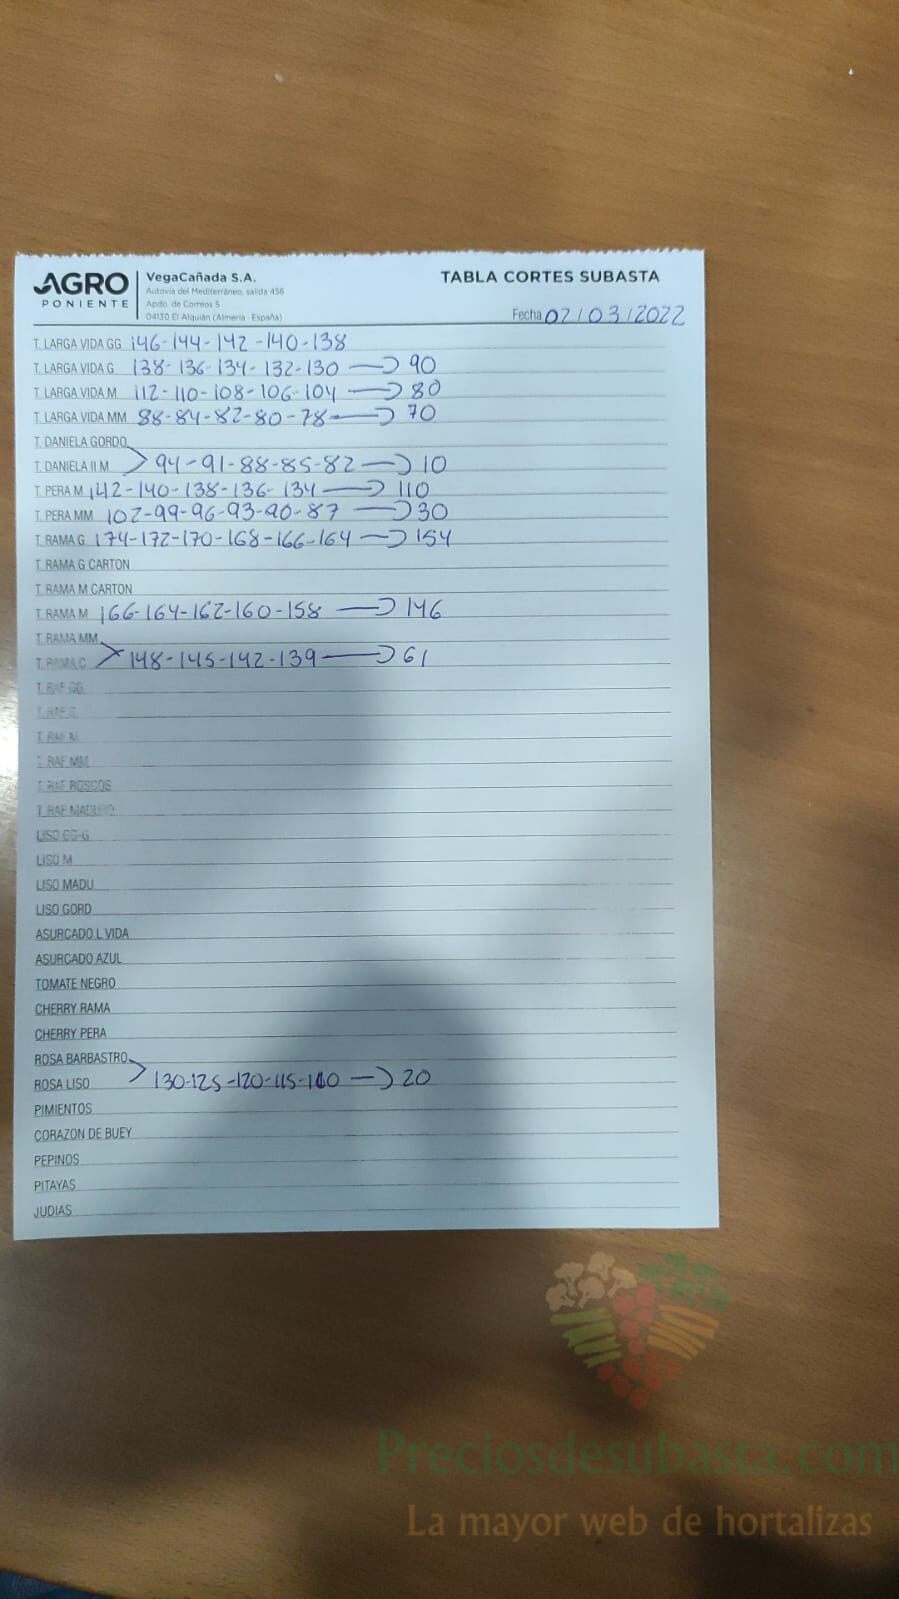 AGRO
PONIENTE
VegaCañada S.A.
Autovía del Mediterráneo, salida 456
Apdo. de Correos 5
04130 El Alquián (Almería - España)
TABLA CORTES SUBASTA
Fecha 02/03/2022
T. LARGA VIDA GG 146-144-142-140-138
T. LARGA VIDA G 138-136-134-132-130 → 90
T. LARGA VIDA M 112-110-108-106-104 → 80
T. LARGA VIDA MM 88-84-82-80-78 → 70
T. DANIELA GORDO
T. DANIELA II M 94-91-88-85-82 → 10
T. PERA M 142-140-138-136-134 → 110
T. PERA MM 102-99-96-93-90-87 → 30
T. RAMA G 174-172-170-168-166-164 → 154
T. RAMA G CARTON
T. RAMA M CARTON
T. RAMA M 166-164-162-160-158 → 146
T. RAMA MM
T. RAMA C 148-145-142-139 → 61
T. RAF GG
T. RAF G
T. RAF M
T. RAF MM
T. RAF ROSCOS
T. RAF MADURO
LISO GG-G
LISO M
LISO MADU
LISO GORD
ASURCADO L VIDA
ASURCADO AZUL
TOMATE NEGRO
CHERRY RAMA
CHERRY PERA
ROSA BARBASTRO
ROSA LISO 130-125-120-115-110 → 20
PIMIENTOS
CORAZON DE BUEY
PEPINOS
PITAYAS
JUDIAS
Preciosdesubasta.com
La mayor web de hortalizas